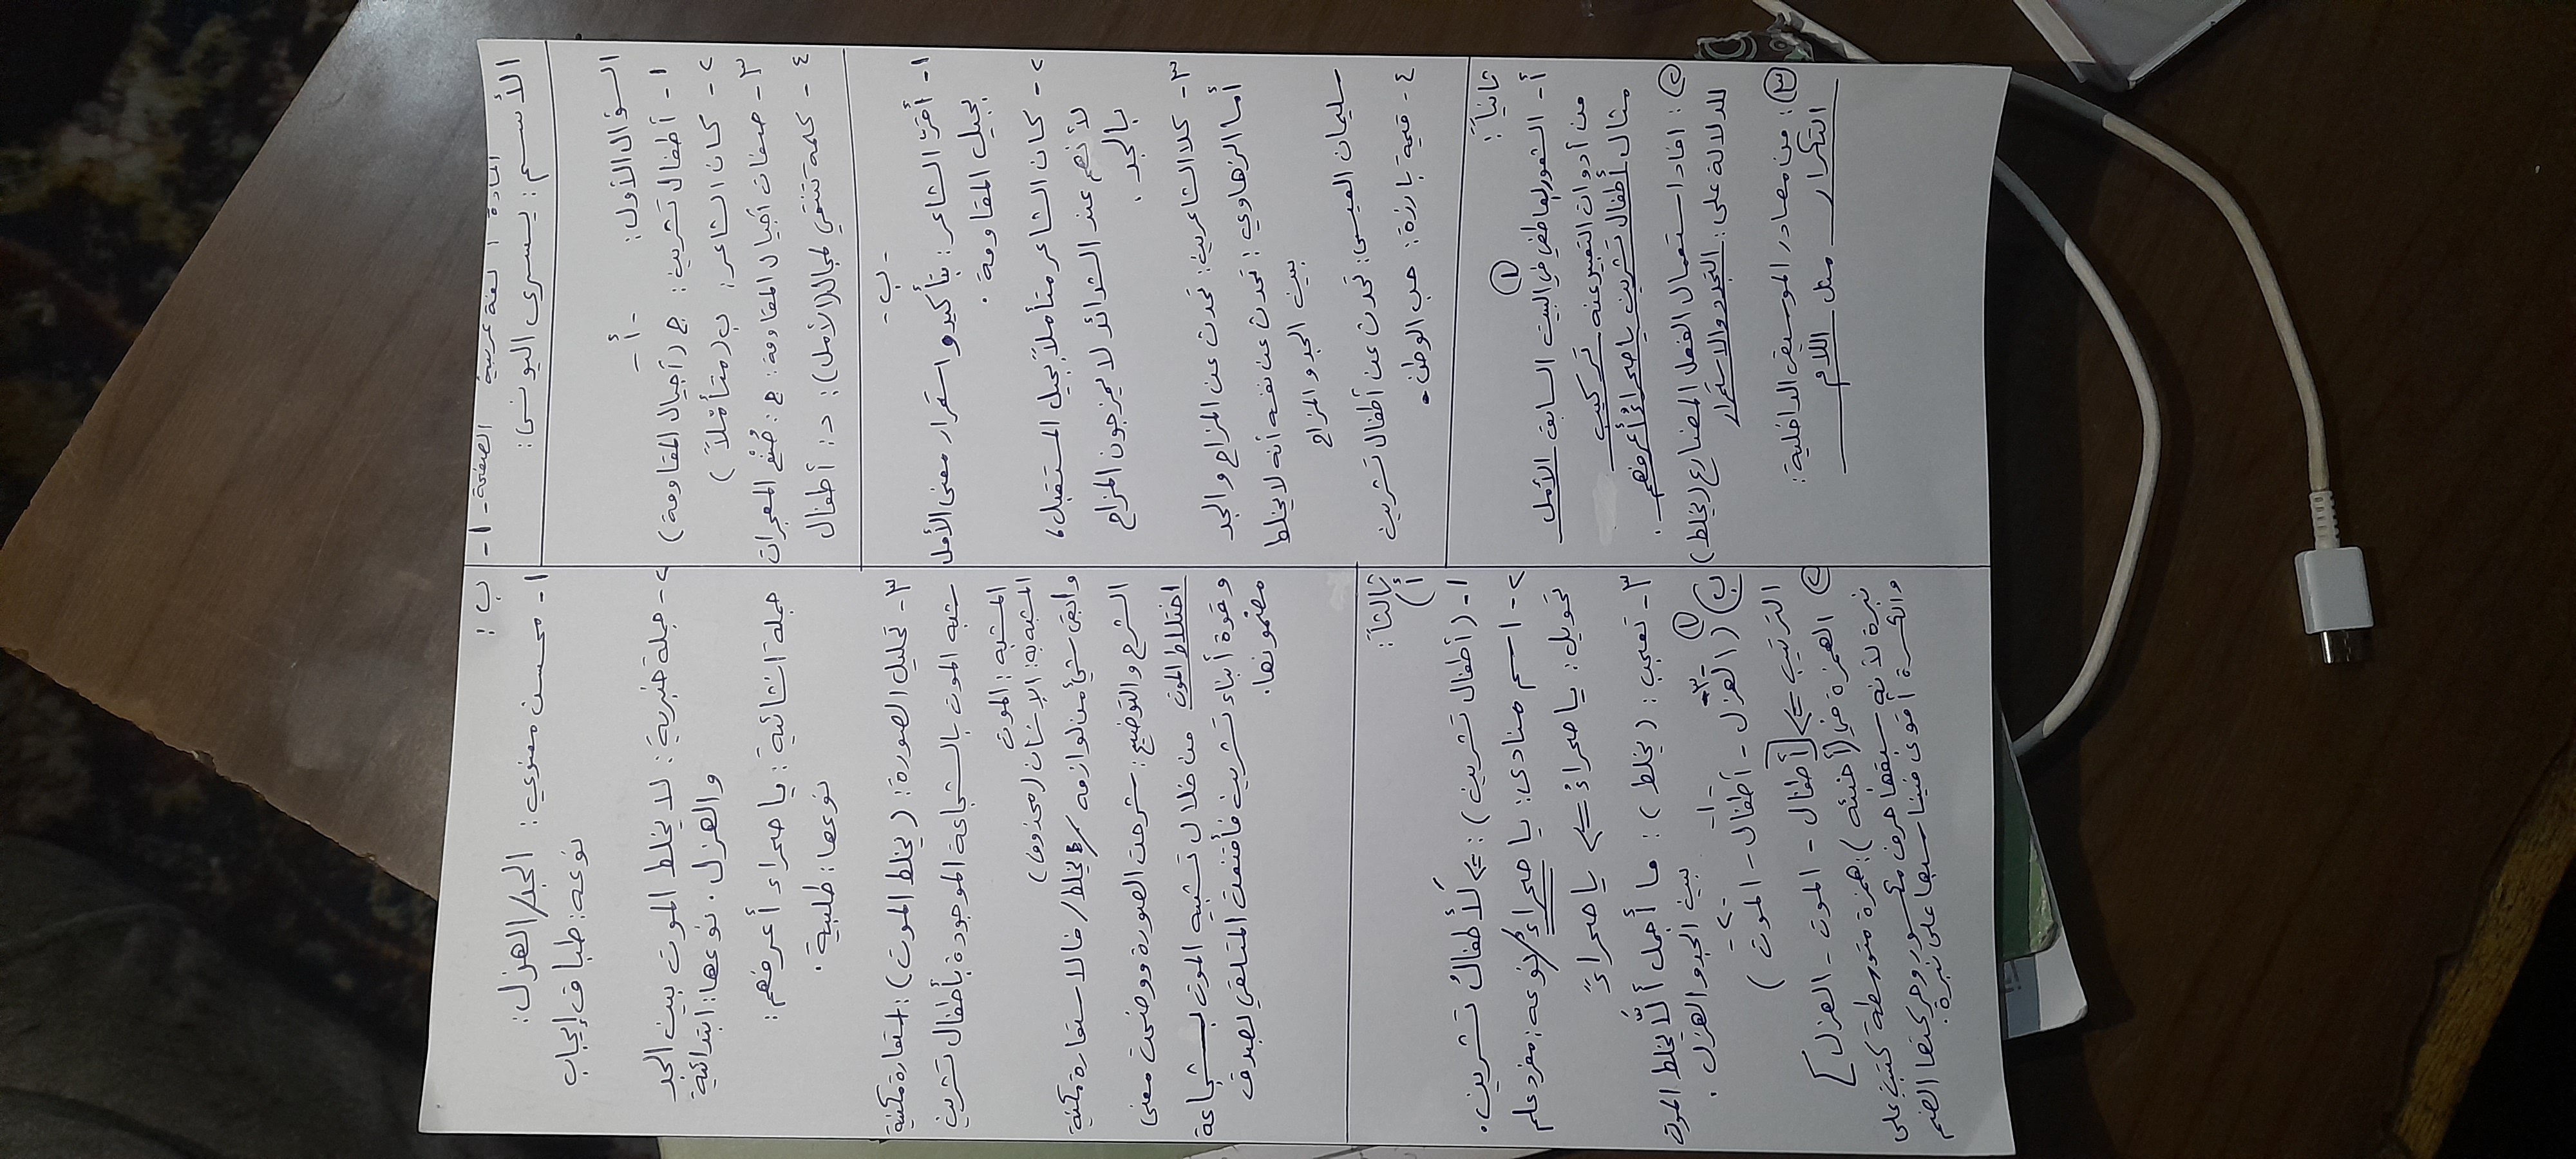 المادة اللغة عربية الصفحة -١-
الأسم: يسرى اليونسي:
السؤال الأول:
-أ-
١- أطفال تشرين: ج (أجيال المقاومة)
٢- كان الشاعر: ب (متأملاً)
٣- صفات أجيال المقاومة: ج: صُنع المعجزات
٤- كلمة تنتمي لمجال (الأمل): د: أطفال
-ب-
١- أقرّ الشاعر: بتأكيد واستقرار معنى الأمل
بجيل المقاومة.
٢- كان الشاعر متأملاً بجيل المستقبل،
لأنهم عند الشدائد لا يمزجون المزاح
بالجد.
٣- كلا الشاعرين: تحدث عن المزاح والجد
أما الزهاوي: تحدث عن نفسه أنه لا يخلط
بين الجد والمزاح
سليمان العيسى: تحدث عن أطفال تشرين
٤- قيمة بارزة: حب الوطن.
ثانياً:
①
أ- الشعور العاطفي في البيت السابق الأمل
من أدوات التعبير عنه تركيب
مثال أطفال تشرين يا صحراءُ أعرفهم.
②: افاد استعمال الفعل المضارع (يخلط)
للدلالة على: التجدد والاستمرار
③: من مصادر الموسيقى الداخلية:
التكرار مثل اللام
ب:
١- محسن معنوي: الجد/الهزل:
نوعه: طباق إيجاب
٢- جملة خبرية: لا يخلط الموت بين الجد
والهزل. نوعها: ابتدائية
جملة انشائية: يا صحراء أعرفهم:
نوعها: طلبية.
٣- تحليل الصورة: (يخلط الموت): استعارة مكنية
شبه الموت بالشجاعة الموجودة بأطفال تشرين
المشبه: الموت
المشبه به: الإنسان (محذوف)
وأبقى شيء من لوازمه /يخلط/ فالاستعارة مكنية
الشرح والتوضيح: شرحت الصورة ووضحت معنى
اختلاط الموت من خلال تشبيه الموت بشجاعة
وقوة أبناء تشرين فأقنعت المتلقي بصدق
مضمونها.
ثالثاً:
(أ)
١- (أطفال تشرين): => لَأطفالُ تشرين.
٢- اسم منادى: يا صحراءُ/نوعه: مفرد علم
تحويل: يا صحراءُ => يا صحراءً
٣- تعجب: (يخلط): ما أجمل ألّا يخلط الموت
بين الجد والهزل.
ب ① (الهزل - أطفال - الموت)
-٣- -١- -٢-
الترتيب => [أطفال - الموت - الهزل]
② الهمزة في (أفئدة): همزة متوسطة كتبت على
نبرة لأنه سبقها حرف مكسور وحركتها الضم
والكسرة أقوى فيناسبها على نبرة.